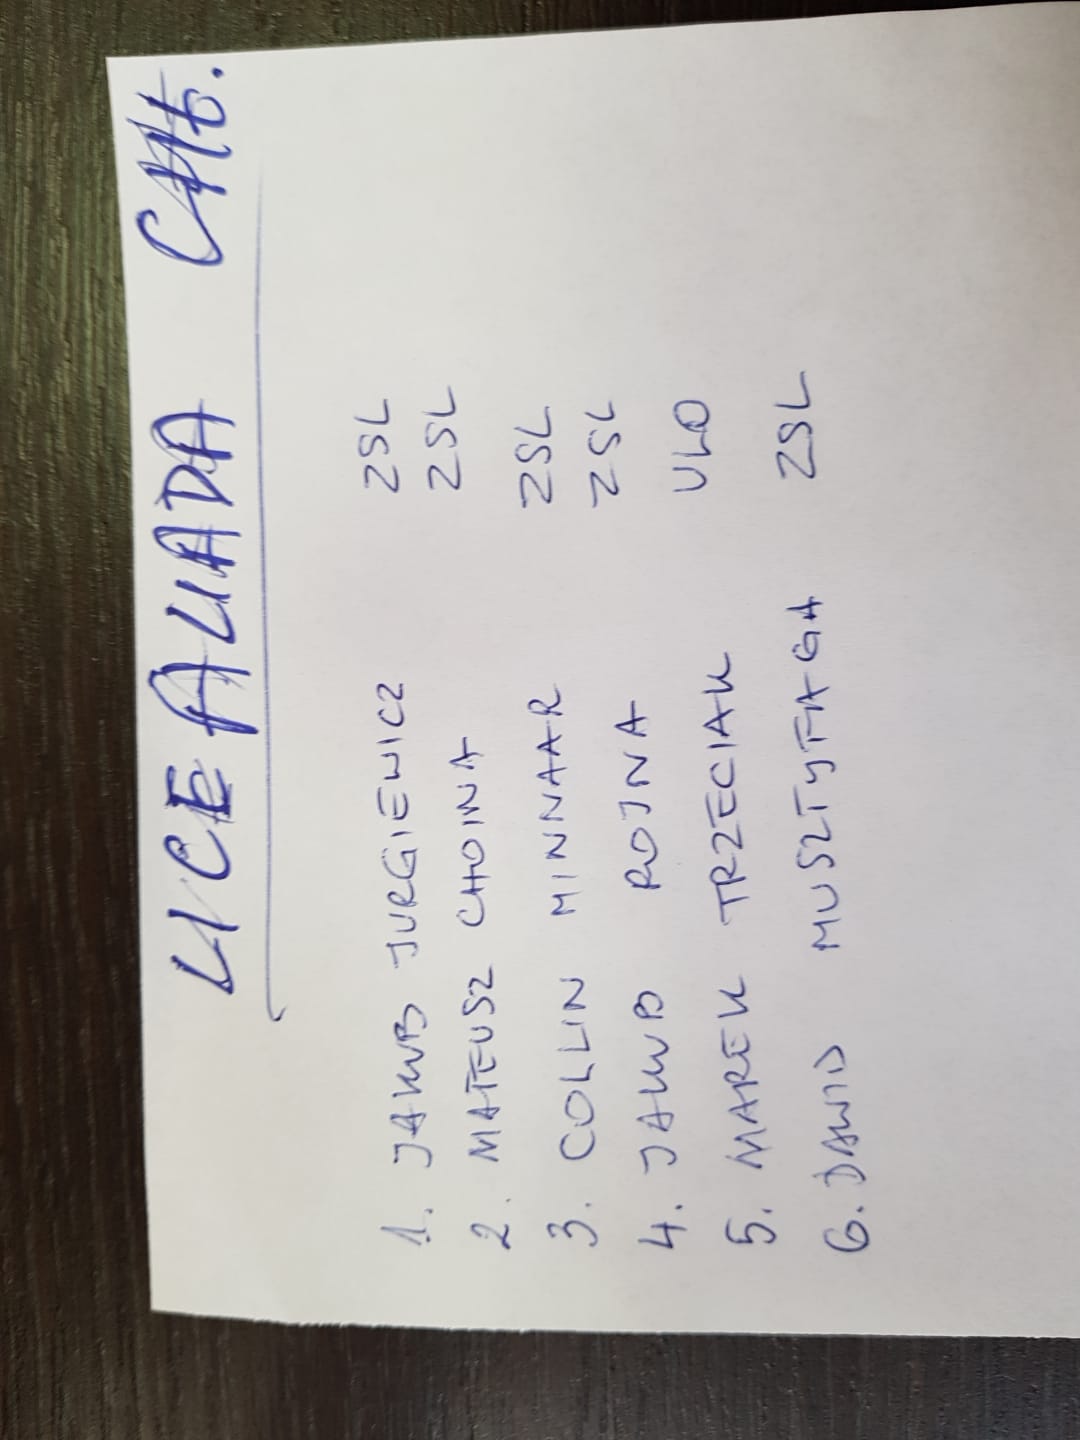 LICEALIADA CHŁ.
1. JAKUB JURGIEWICZ ZSL
2. MATEUSZ CHOINA ZSL
3. COLLIN MINNAAR ZSL
4. JAKUB ROJNA ZSL
5. MAREK TRZECIAK VLO
6. DAWID MUSZTYFAGA ZSL